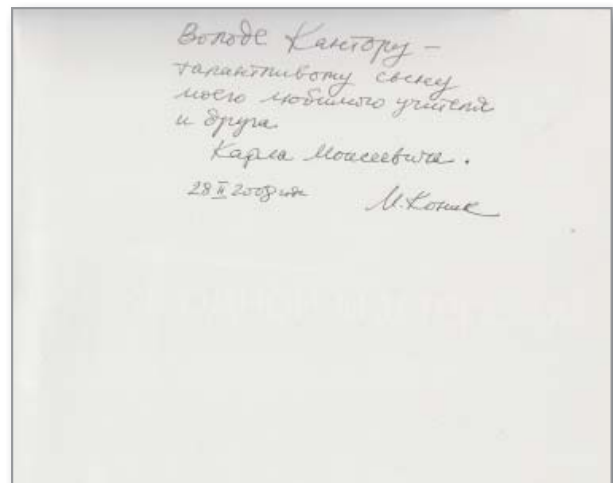 Володе Кантору –
талантливому сыну
моего любимого учителя
и друга
Карла Моисеевича.
28 II 2008 года
М. Коник